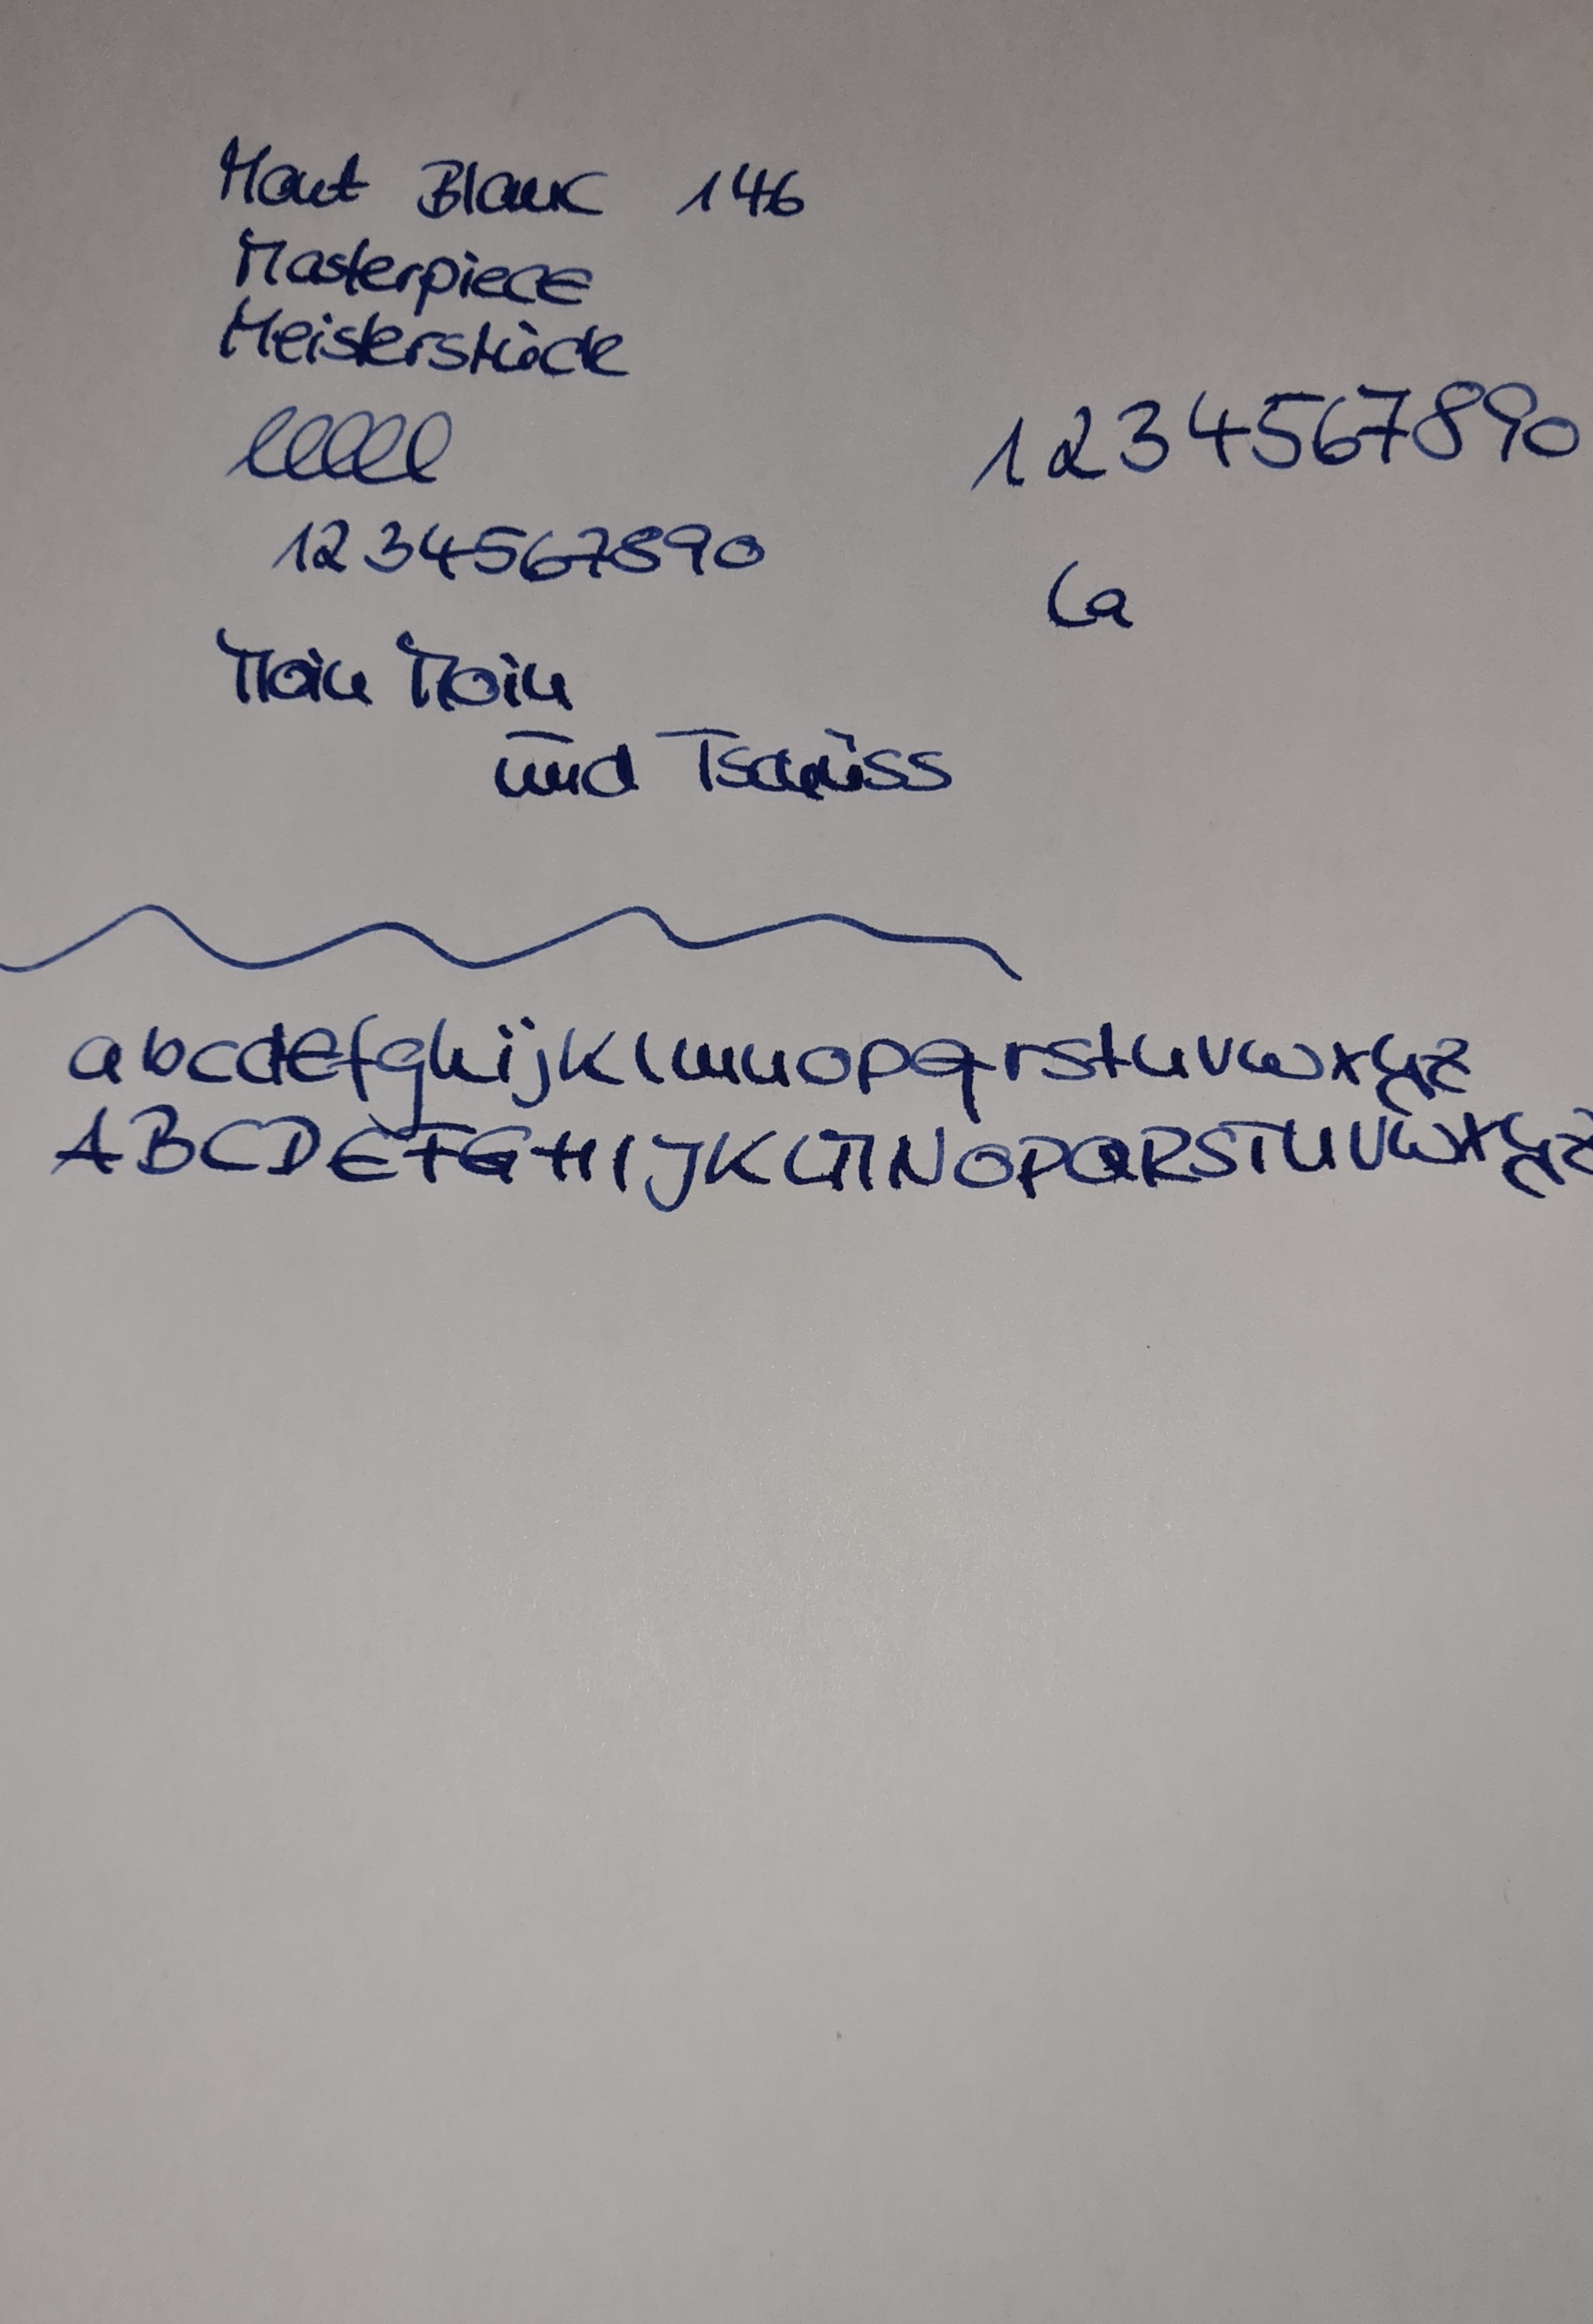 Mont Blanc 146
Masterpiece
Meisterstück
1234567890
1234567890
Moin Moin
und Tschüss
abcdefghijklmnopqrstuvwxyz
ABCDEFGHIJKLMNOPQRSTUVWXYZ